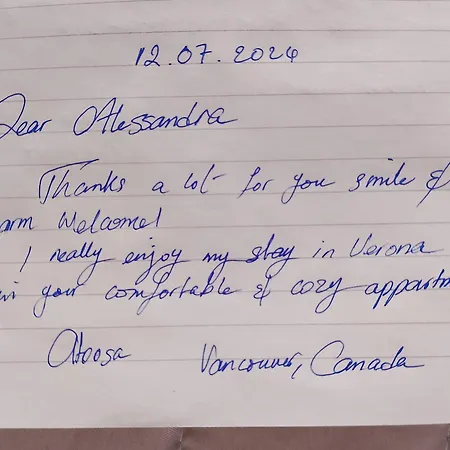 12.07.2024
Dear Alessandra
Thanks a lot for you smile &
arm Welcome!
I really enjoy my stay in Verona
in your comfortable & cozy appartm
Atoosa Vancouver, Canada